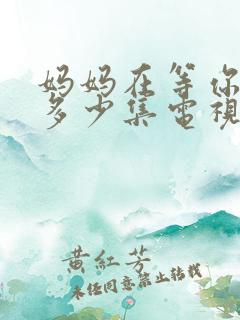 妈妈在等你
多少集電視
黄紅芳
未经同意禁止转载